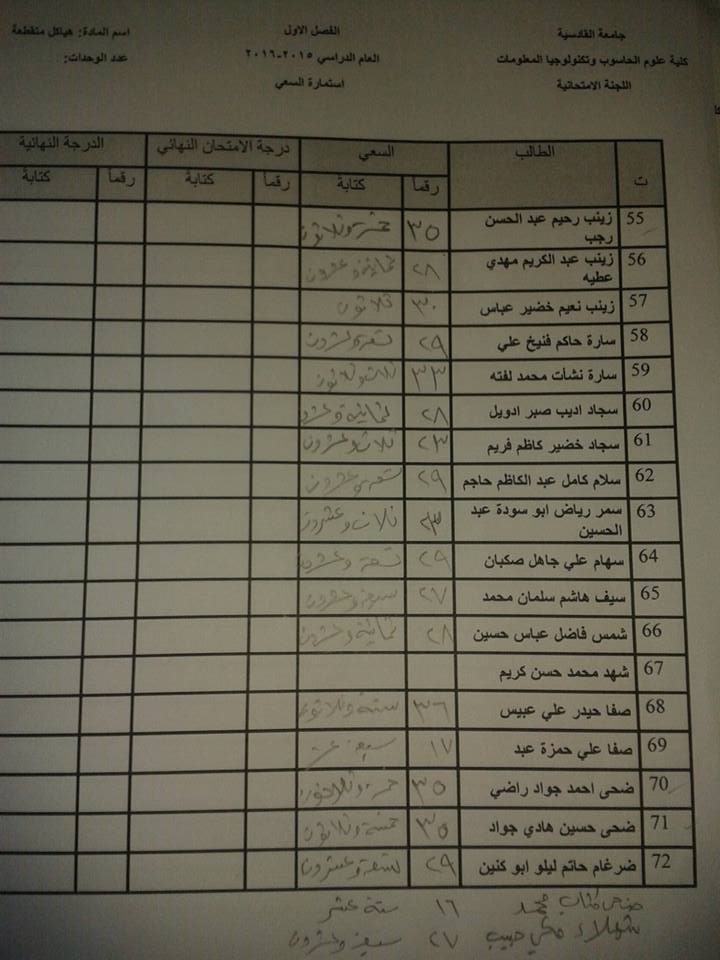 جامعة القادسية الفصل الاول اسم المادة: هياكل متقطعة
كلية علوم الحاسوب وتكنولوجيا المعلومات العام الدراسي ٢٠١٥-٢٠١٦ عدد الوحدات:
اللجنة الامتحانية استمارة السعي
ت الطالب السعي درجة الامتحان النهائي الدرجة النهائية
رقماً كتابة رقماً كتابة رقماً كتابة
55 زينب رحيم عبد الحسن ٣٥ خمسة وثلاثون
رجب
56 زينب عبد الكريم مهدي ٢٨ ثمانية وعشرون
عطيه
57 زينب نعيم خضير عباس ٣٠ ثلاثون
58 سارة حاكم فنيخ علي ٢٩ تسعة وعشرون
59 سارة نشأت محمد لفته ٣٣ ثلاث وثلاثون
60 سجاد اديب صبر ادويل ٢٨ ثمانية وعشرون
61 سجاد خضير كاظم فريم ٢٣ ثلاث وعشرون
62 سلام كامل عبد الكاظم حاجم ٢٩ تسعة وعشرون
63 سمر رياض ابو سودة عبد ٢٣ ثلاث وعشرون
الحسين
64 سهام علي جاهل صكبان ٢٩ تسعة وعشرون
65 سيف هاشم سلمان محمد ٢٧ سبعة وعشرون
66 شمس فاضل عباس حسين ٢٨ ثمانية وعشرون
67 شهد محمد حسن كريم
68 صفا حيدر علي عبيس ٣٦ ستة وثلاثون
69 صفا علي حمزة عبد ١٧ سبعة عشر
70 ضحى احمد جواد راضي ٣٥ خمسة وثلاثون
71 ضحى حسين هادي جواد ٣٥ خمسة وثلاثون
72 ضرغام حاتم ليلو ابو كنين ٢٩ تسعة وعشرون
محمد ١٦ ستة عشر
شهلاء حبيب ٢٧ سبعة وعشرون